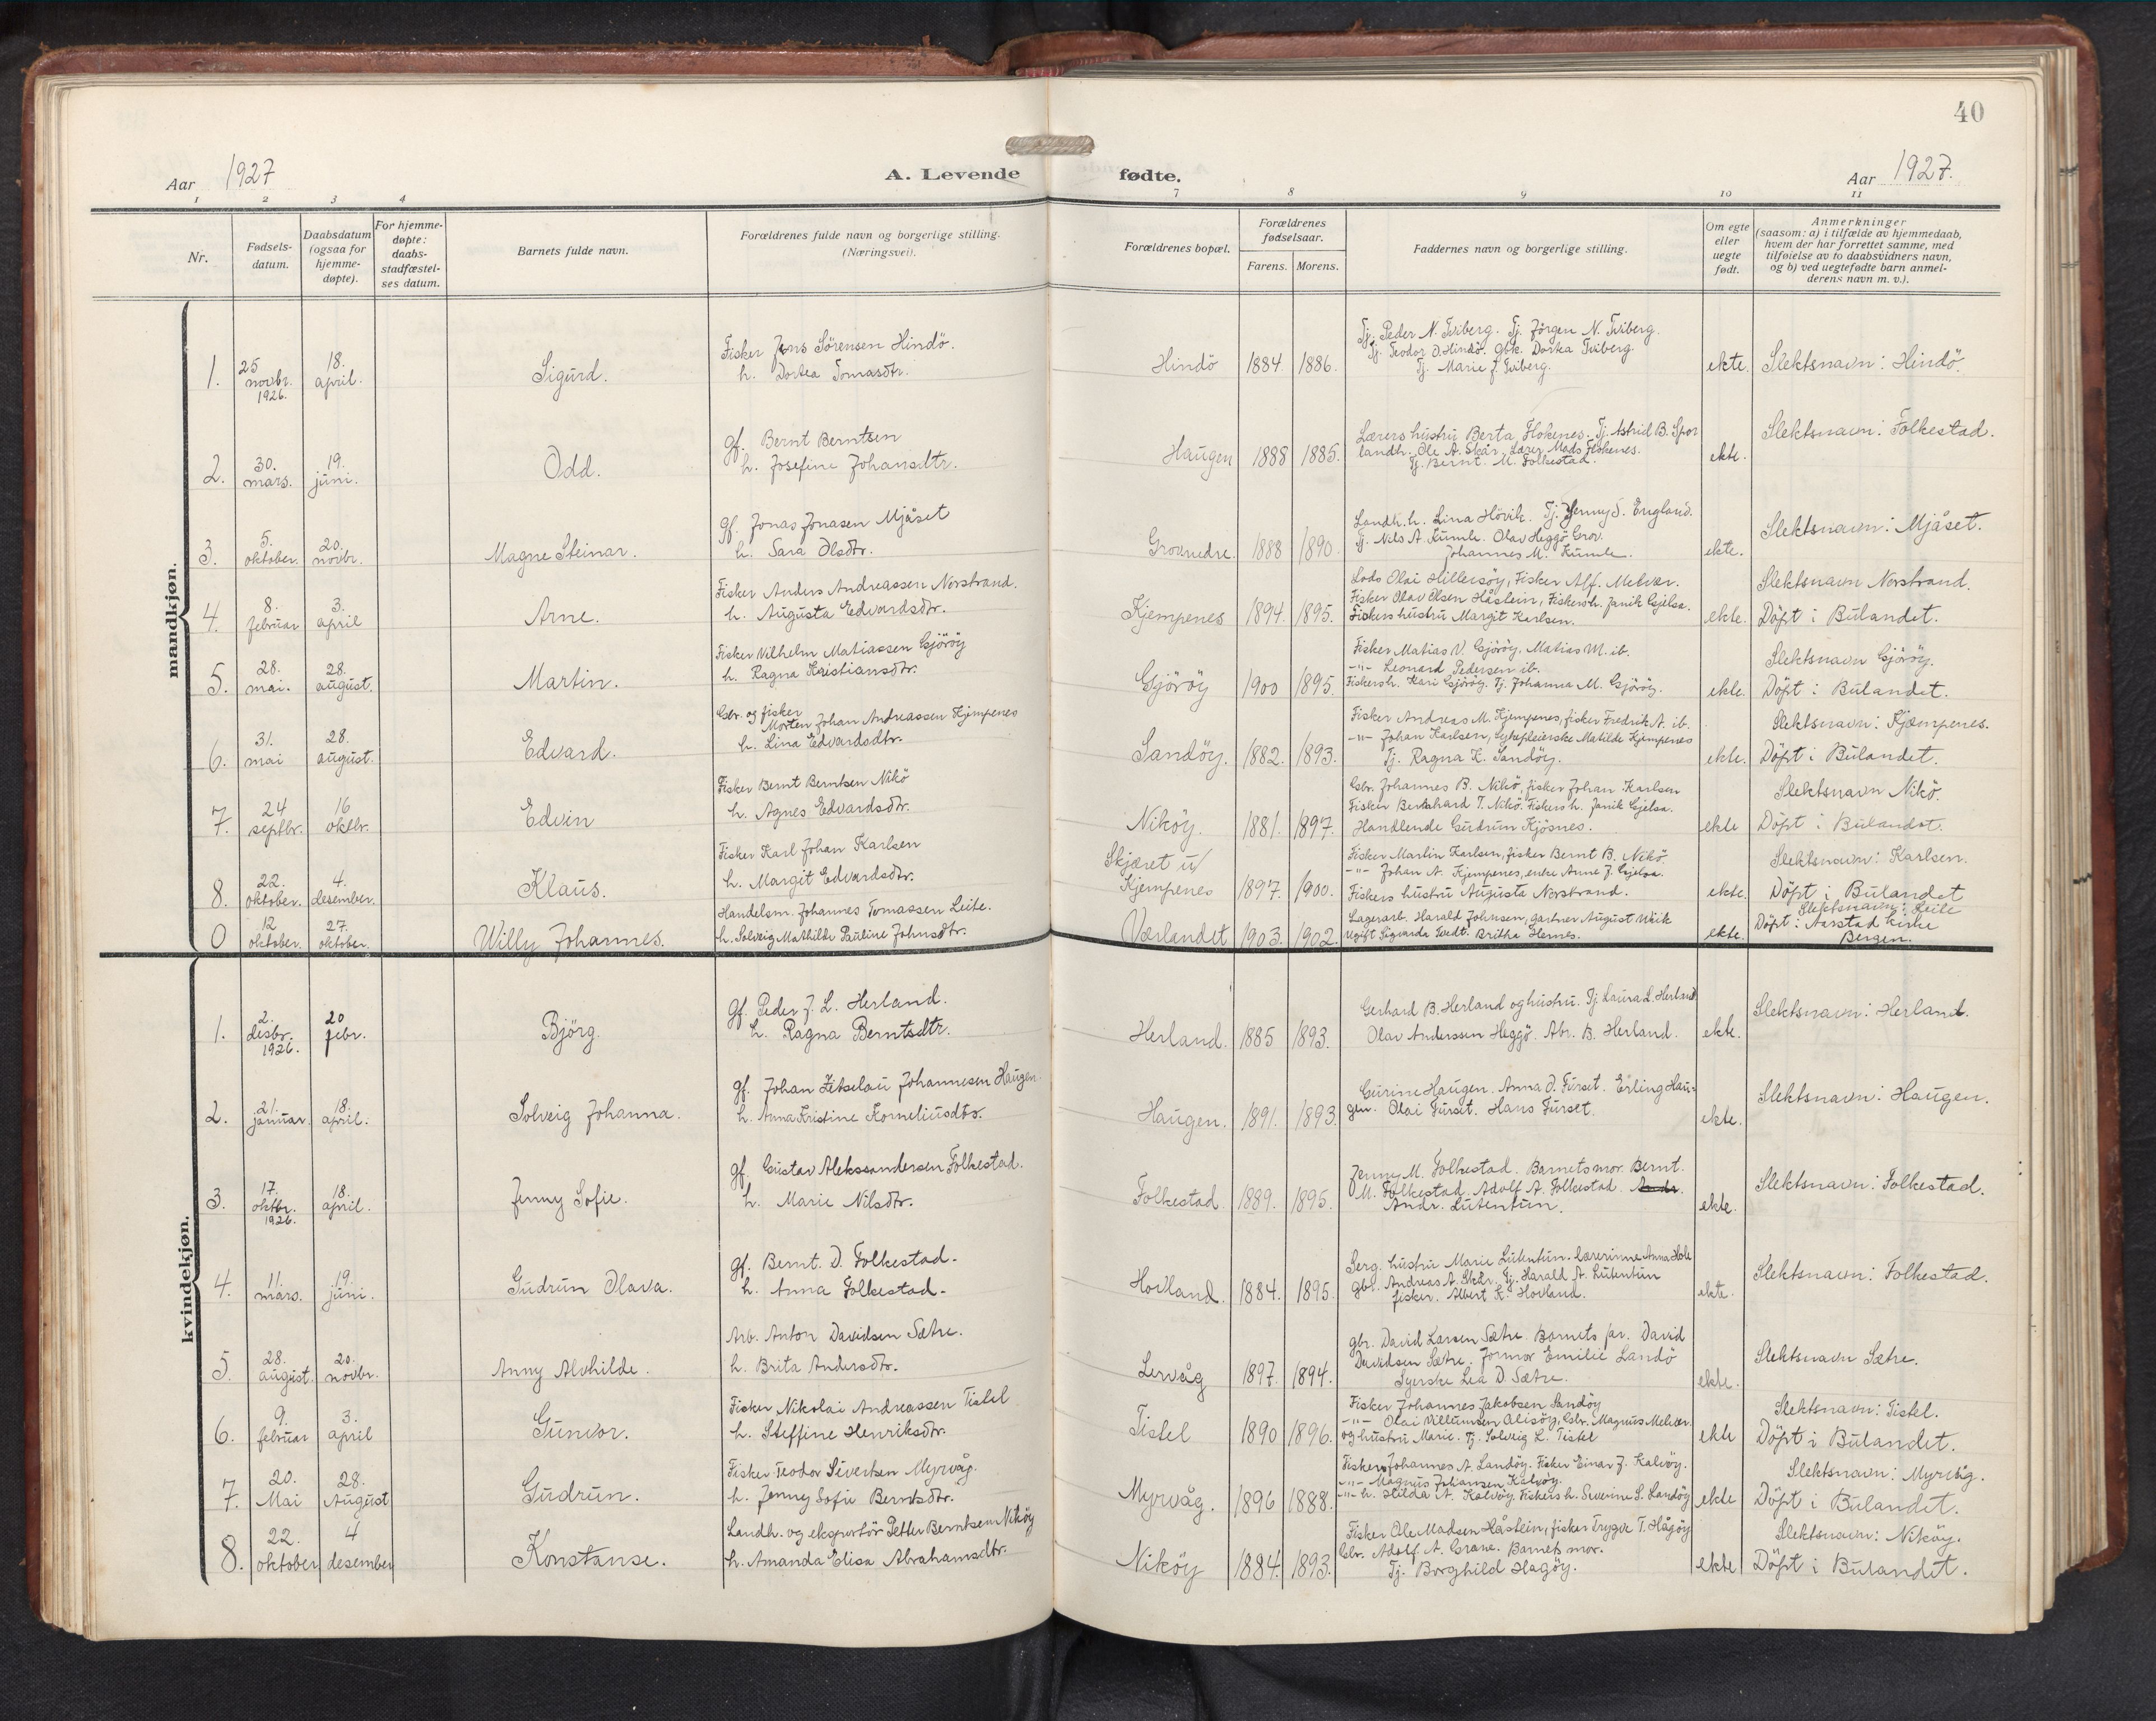 40
Aar 1927 A. Levende fødte. Aar 1927.
1 2 3 4 7 8 9 10 11
Nr.
Fødsels-
datum.
Daabsdatum
(ogsaa for
hjemme-
døpte).
For hjemme-
døpte:
daabs-
stadfæstel-
ses datum.
Barnets fulde navn.
Forældrenes fulde navn og borgerlige stilling.
(Næringsvei).
Forældrenes bopæl.
Forældrenes
fødselsaar.
Farens. Morens.
Faddernes navn og borgerlige stilling.
Om egte
eller
uegte
født.
Anmerkninger
(saasom: a) i tilfælde av hjemmedaab,
hvem der har forrettet samme, med
tilføielse av to daabsvidners navn,
og b) ved uegtefødte barn anmel-
derens navn m. v.).
mandkjøn.
1. 25 novbr. 1926. 18. april. Sigurd.
Fisker Jens Sörensen Hindö.
h. Dortea Tomasdtr.
Hindö 1884 1886.
Tj. Peder N. Tviberg. Tj. Jörgen N. Tviberg.
Tj. Teodor D. Hindö. Gbk. Dortea Tviberg.
Tj. Marie J. Tviberg.
ekte. Slektsnavn: Hindö.
2. 30. mars. 19. juni. Odd.
Gf. Bernt Berntsen
h. Josefine Johansdtr.
Haugen 1888 1885.
Lærers hustru Berta Flokenes. Tj. Astrid B. Spor
landh. Ole A. Skår. Lærer Mads Flokenes.
Tj. Bernt M. Folkestad.
ekte. Slektsnavn: Folkestad.
3. 5. oktober. 20. novbr. Magne Steinar.
Gf. Jonas Jonasen Mjåset
h. Sara Olsdtr.
Grovnedre. 1888 1890.
Landh. h. Lina Hövik. Tj. Jenny S. England.
Tj. Nils A. Kumle. Olav Heggö Grov.
Johannes M. Kumle.
ekte. Slektsnavn: Mjåset.
4. 8. februar 3. april Arne.
Fisker Anders Andreassen Norstrand.
h. Augusta Edvardsdtr.
Kjempenes 1894. 1895.
Lods Olai Hillersöy, Fisker Alf. Melvær.
Fisker Olav Olsen Håstein, Fiskersh. Janik Gjelsa.
Fiskers hustru Margit Karlsen.
ekte. Slektsnavn Norstrand.
Döpt i Bulandet.
5. 28. mai. 28. august. Martin.
Fisker Vilhelm Matiassen Gjöröy
h. Ragna Kristiansdtr.
Gjöröy 1900 1895.
Fisker Matias V. Gjöröy, Matias M. ib.
-"- Leonard Pedersen ib.
Fiskersh. Kari Gjöröy. Tj. Johanna M. Gjöröy.
ekte. Slektsnavn Gjöröy.
Döpt i Bulandet.
6. 31. mai 28. august. Edvard.
Gbr. og fisker
Morten Johan Andreassen Kjempenes
h. Lina Edvardsdtr.
Sandöy. 1882. 1893.
Fisker Andreas M. Kjempenes, fisker Fredrik A. ib.
-"- Johan Karlsen, Sykepleierske Matilde Kjempenes
Tj. Ragna K. Sandöy.
ekte. Slektsnavn: Kjæmpenes.
Döpt i Bulandet.
7. 24 septbr. 16 oktbr. Edvin
Fisker Bernt Berntsen Nikö
h. Agnes Edvardsdtr.
Niköy. 1881. 1897.
Gbr. Johannes B. Nikö, fisker Johan Karlsen
Fisker Bernhard T. Nikö. Fiskersh. Janik Gjelsa.
Handlende Gudrun Kjösnes.
ekte Slektsnavn Nikö.
Döpt i Bulandet.
8. 22. oktober. 4. desember. Klaus.
Fisker Karl Johan Karlsen
h. Margit Edvardsdtr.
Skjæret u/
Kjempenes 1897. 1900.
Fisker Martin Karlsen, fisker Bernt B. Nikö.
-"- Johan A. Kjempenes, enke Anne J. Gjelsa.
Fiskers hustru Augusta Norstrand.
ekte Slektsnavn: Karlsen.
Döpt i Bulandet
0 12 oktober. 27. oktober. Willy Johannes.
Handelsm. Johannes Tomassen Leite.
h. Solveig Mathilde Pauline Johnsdtr.
Værlandet 1903. 1902.
Lagerarb. Harald Johnsen, gartner August Wiik
Ugift Sigvarda Tvedt. Britha Hernes.
ekte. Slektsnavn: Leite
Döpt i Aarstad kirke
Bergen.
kvindekjøn.
1. 2. desbr. 1926. 20 febr. Björg.
Gf. Peder J. L. Herland.
h. Ragna Berntsdtr.
Herland. 1885 1893.
Gerhard B. Herland og hustru. Tj. Laura L. Herland
Olav Anderssen Heggö. Abr. B. Herland.
ekte. Slektsnavn: Herland.
2. 21. januar. 18. april. Solveig Johanna.
Gf. Johan Johannesen Haugen.
h. Anna Kristine Korneliusdtr.
Haugen. 1891. 1893.
Gurine Haugen. Anna O. Furset. Erling Hau-
gen. Olai Furset. Hans Furset.
ekte. Slektsnavn: Haugen.
3. 17. oktbr. 1926. 18. april. Jenny Sofie.
Gf. Gustav Aleksandersen Folkestad.
h. Marie Nilsdtr.
Folkestad. 1889. 1895.
Jenny M. Folkestad. Barnets mor. Bernt.
M. Folkestad. Adolf A. Folkestad. Andr.
Andr. Lutentun.
ekte. Slektsnavn: Folkestad.
4. 11. mars. 19. juni. Gudrun Olava.
Gf. Bernt. D. Folkestad.
h. Anna Folkestad.
Hovland. 1884. 1895.
Serg. hustru Marie Lutentun. Lærerinne Anna Hole
gbr. Andreas A. Skår. Tj. Harald A. Lutentun
fisker. Albert K. Hovland.
ekte. Slektsnavn: Folkestad.
5. 28. august. 20. novbr. Anny Alvhilde.
Arb. Anton Davidsen Sætre.
h. Brita Andersdtr.
Lervåg 1897. 1894.
gbr. David Larsen Sætre. Barnets far. David
Davidsen Sætre. Jormor Emilie Landö
Syerske Lea D. Sætre.
ekte. Slektsnavn Sætre.
6. 9. februar 3. april Gunvor.
Fisker Nikolai Andreassen Tistel
h. Steffine Henriksdtr.
Tistel 1890 1896.
Fisker Johannes Jakobsen Sandöy
-"- Olai Villumsen Alisöy, Gbr. Magnus Melvær
og hustru Marie. Tj. Solveig L. Tistel
ekte Slektsnavn: Tistel.
Döpt i Bulandet.
7. 20. Mai 28. August Gudrun.
Fisker Teodor Sivertsen Myrvåg.
h. Jenny Sofie Berntsdtr.
Myrvåg. 1896 1888.
Fisker Johannes A. Landöy. Fisker Einar J. Kalvöy.
-"- Magnus Johansen Kalvöy.
-"- h. Hilda A. Kalvöy. Fiskers h. Severine S. Landöy
ekte Slektsnavn: Myrvåg.
Döpt i Bulandet.
8. 22. oktober 4 desember Konstanse.
Landh. og eksportör Petter Berntsen Niköy
h. Amanda Elisa Abrahamsdtr.
Niköy 1884. 1893.
Fisker Ole Madsen Håstein, fisker Trygve T. Hågöy
Gbr. Adolf A. Grane. Barnets mor.
Tj. Borghild Hagöy.
ekte Slektsnavn: Niköy.
Döpt i Bulandet.